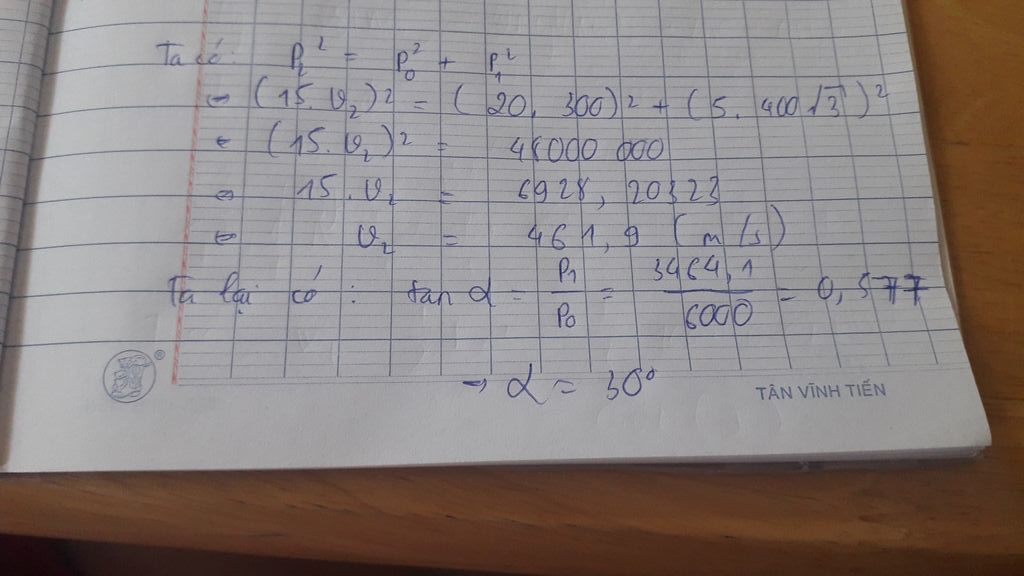 Ta có: P₂² = P₀² + P₁²
⇔ (15. v₂)² = (20. 300)² + (5. 400√3)²
⇔ (15. v₂)² = 48000 000
⇔ 15. v₂ = 6928, 20323
⇔ v₂ = 461, 9 (m/s)
Ta lại có: tan α = P₁/P₀ = 3464,1/6000 = 0,577
→ α = 30°
TÂN VĨNH TIẾN